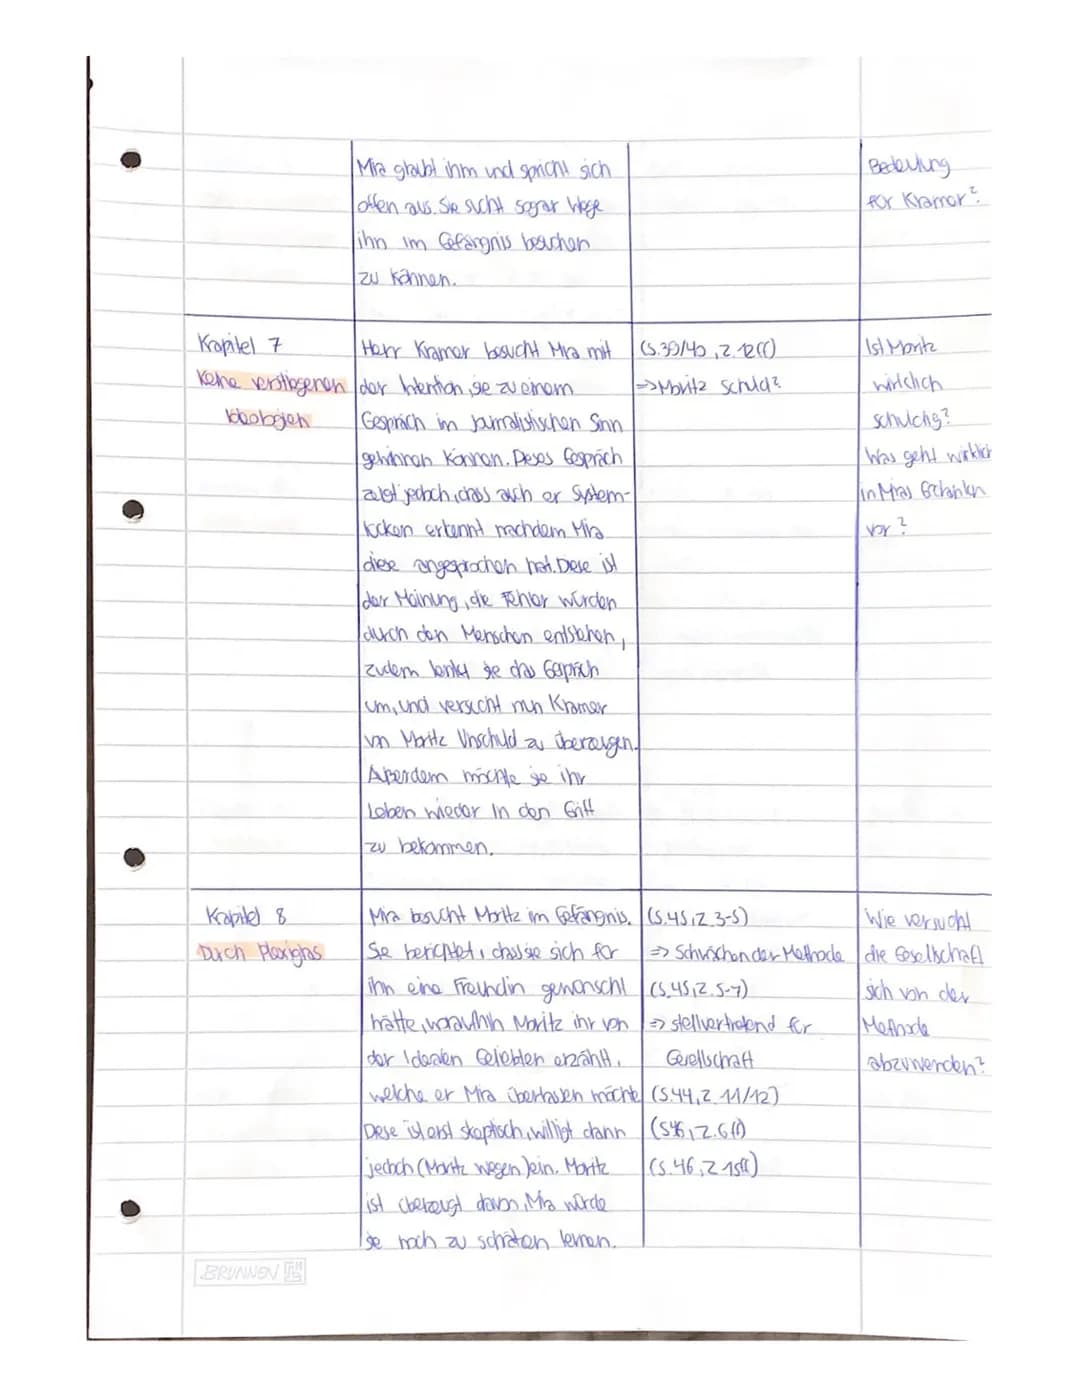 Mia glaubt ihm und spricht sich
offen aus. Sie sucht sogar Wege
ihn im Gefängnis besuchen
zu können.
Bedeutung
für Kramer?
Kapitel 7
Keine verstiegenen
Ideologien
Herr Kramer besucht Mia mit
der Intention, sie zu einem
Gespräch im journalistischen Sinn
gewinnen können. Dieses Gespräch
zeigt jedoch, dass auch er System-
lücken erkennt nachdem Mia
diese angesprochen hat. Diese ist
der Meinung, die Fehler würden
durch den Menschen entstehen,
zudem lenkt sie das Gespräch
um, und versucht nun Kramer
von Moritz Unschuld zu überzeugen.
Außerdem möchte sie ihr
Leben wieder in den Griff
zu bekommen.
(S.39/40, Z.12ff)
=> Moritz Schuld?
Ist Moritz
wirklich
schuldig?
Was geht wirklich
in Mias Gedanken
vor?
Kapitel 8
Durch Plexiglas
Mia besucht Moritz im Gefängnis.
Sie berichtet, dass sie sich für
ihn eine Freundin gewünscht
hätte, woraufhin Moritz ihr von
der Idealen Geliebten erzählt,
welche er Mia überlassen möchte
Diese ist erst skeptisch, willigt dann
jedoch (Moritz wegen) ein. Moritz
ist überzeugt davon, Mia würde
sie noch zu schätzen lernen.
(S.45, Z.3-5)
=> Schwächen der Methode
(S.45, Z.5-7)
=> stellvertretend für
Gesellschaft
(S.44, Z.11/12)
(S46, Z.6ff)
(S.46, Z 15ff)
Wie versucht
die Gesellschaft
sich von der
Methode
abzuwenden?
BRUNNEN